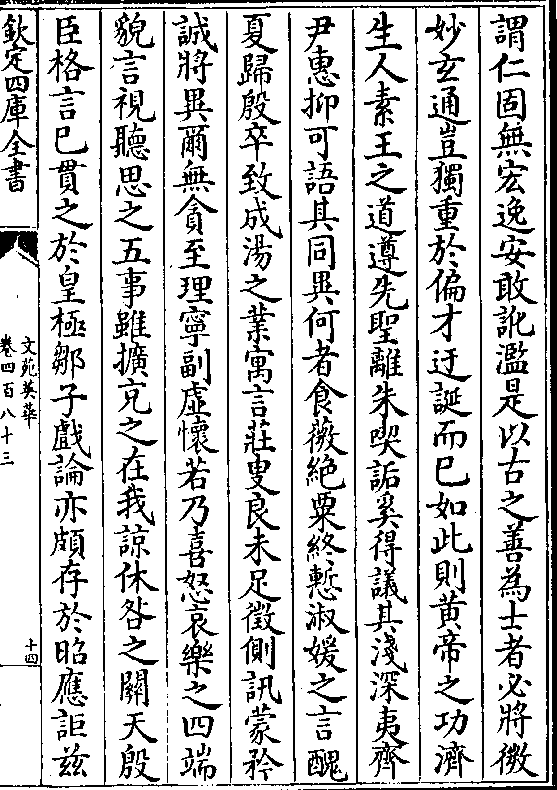 謂仁固無宏逸安敢訛濫是以古之善為士者必將微
妙玄通豈獨重於偏才迂誕而已如此則黄帝之功濟
生人素王之道遵先聖離朱喫詬奚得議其淺深夷齊
尹惠抑可語其同異何者食薇絶粟終慙淑媛之言醜
夏歸殷卒致成湯之業寓言莊叟良未足徵側訊蒙矜
誠將異爾無貪至理寧副虚懷若乃喜怒哀樂之四端
貌言視聽思之五事雖擴充之在我諒休咎之關天殷
臣格言已貫之於皇極鄒子戲論亦頗存於昭應詎兹
欽定四庫全書
文苑英華
卷四百八十三
十四